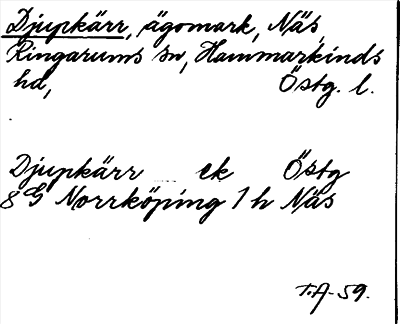 Djupkärr, ägomark, Näs,
Ringarums sn, Hammarkinds
hd, Östg. l.
Djupkärr ek Östg
8 G Norrköping 1 h Näs
T.A-59.